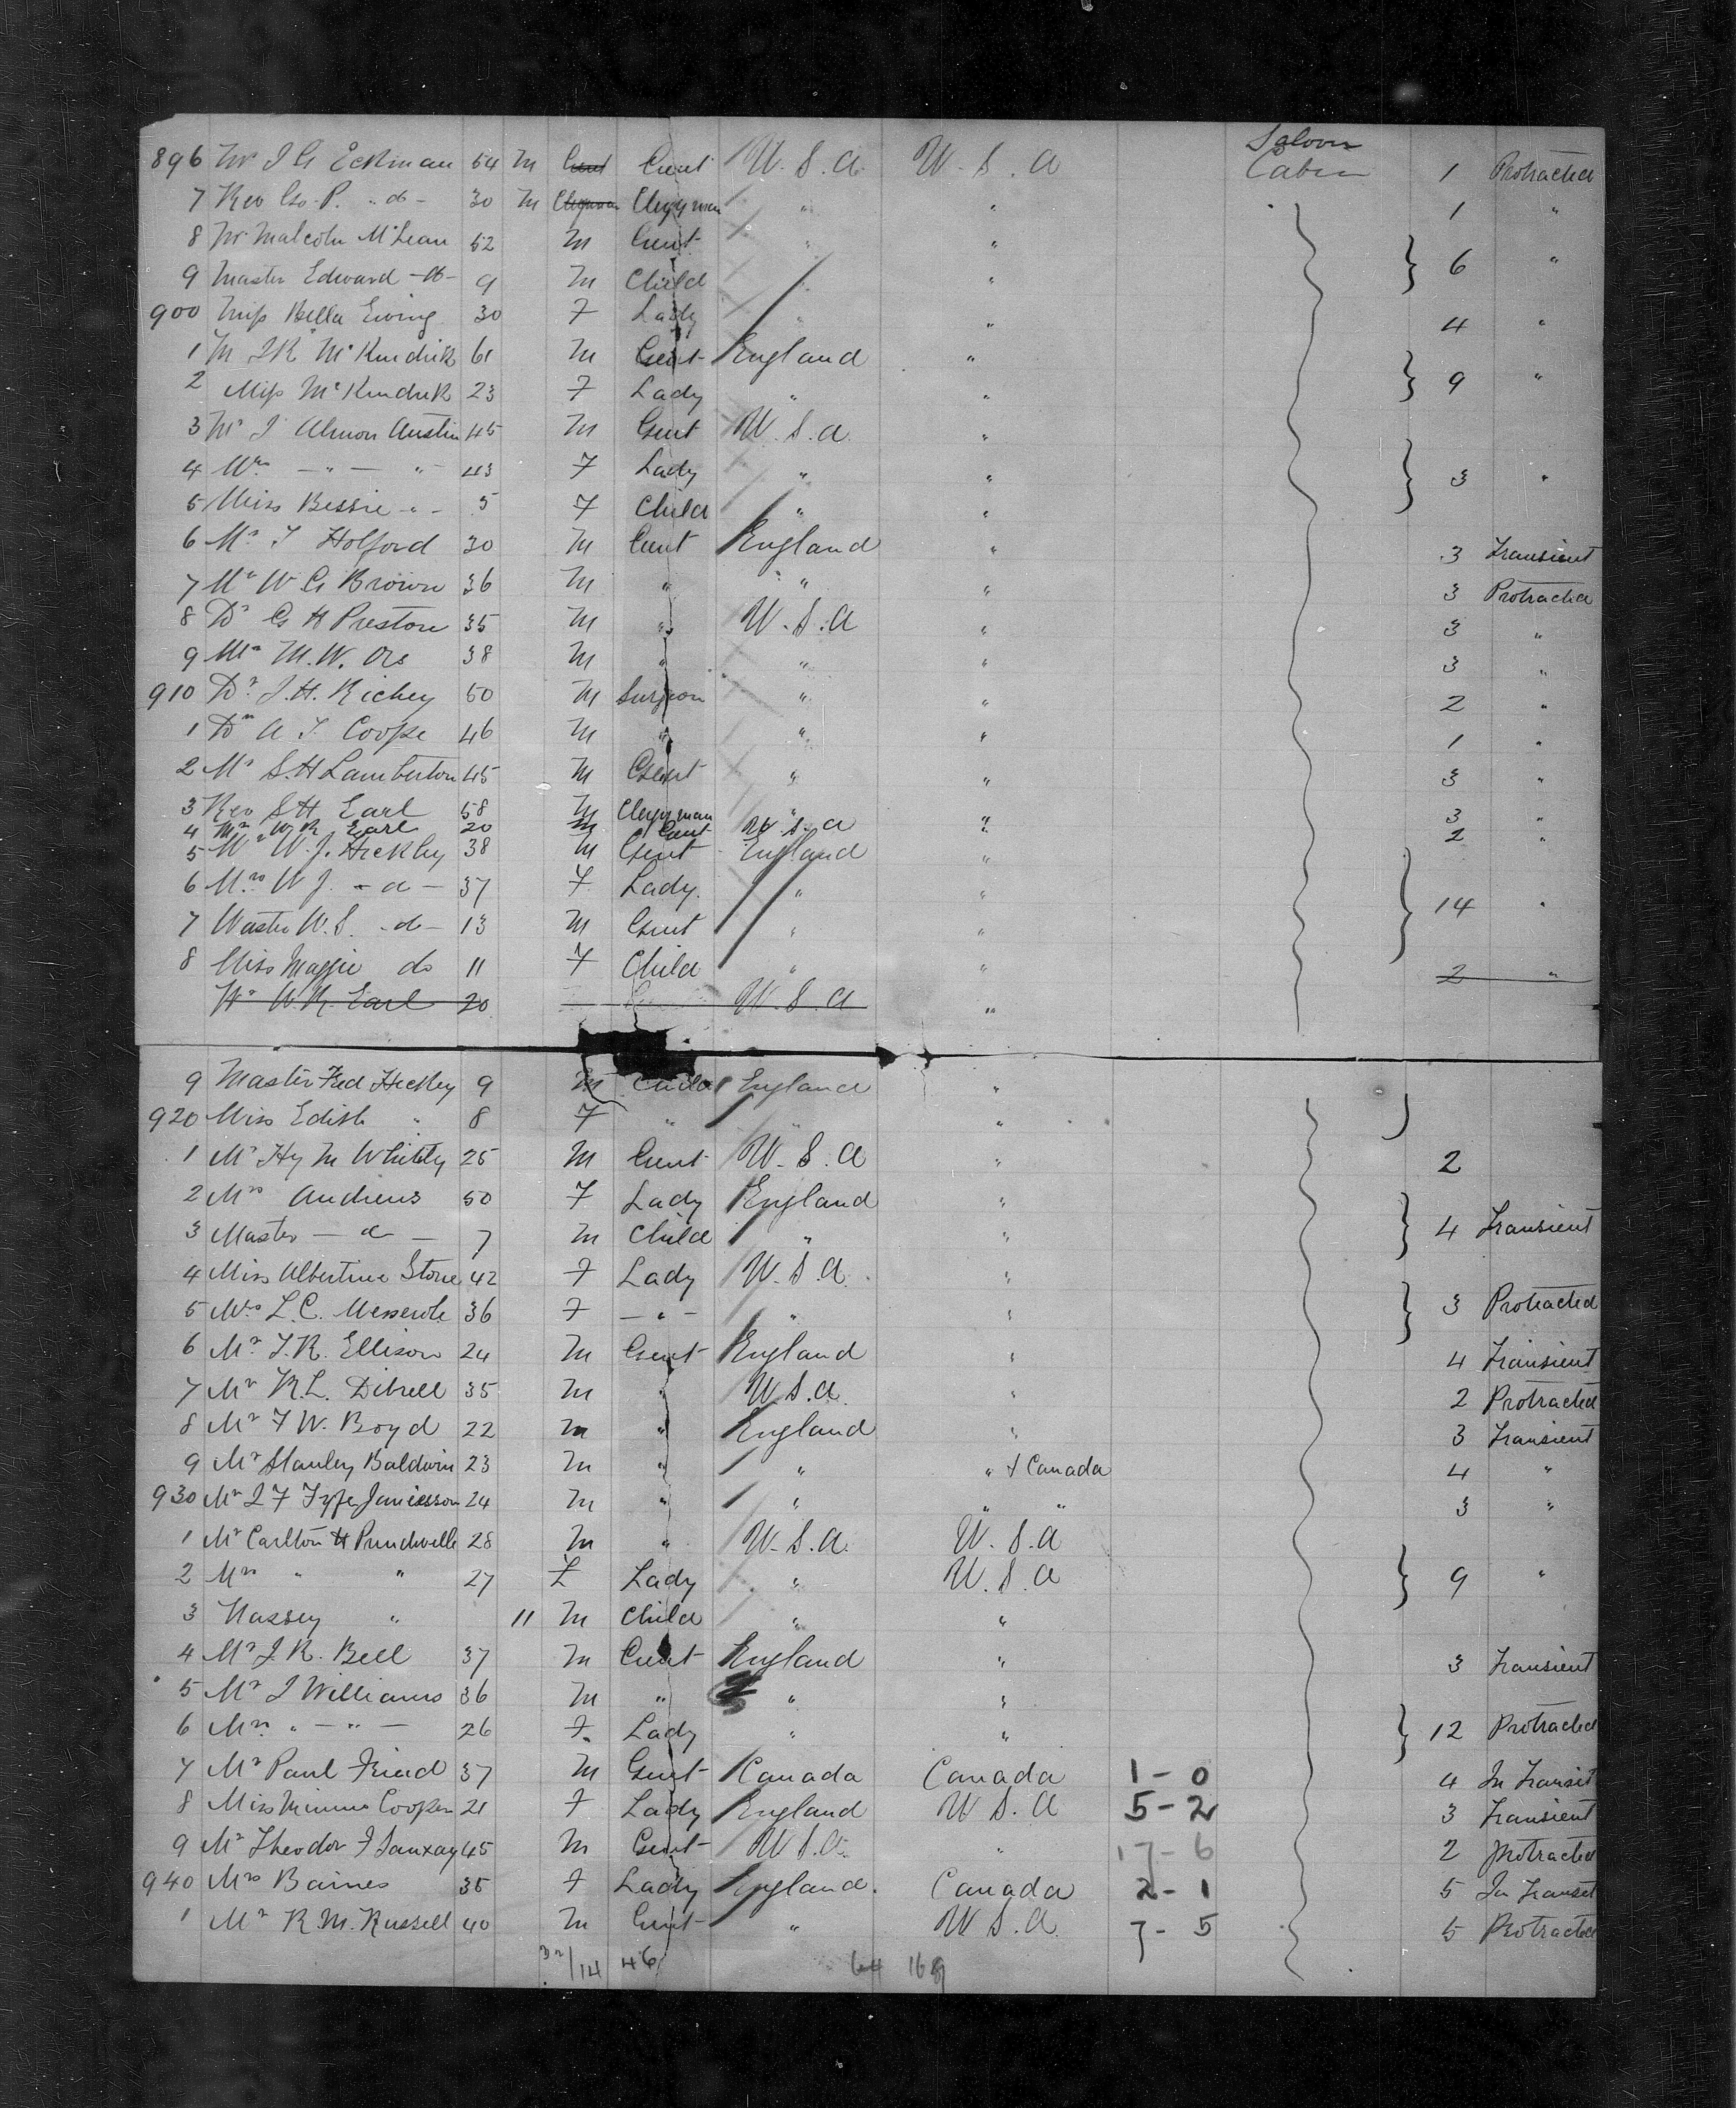 Saloon
896 Mr J G Eckman 54 M Gent Gent U.S.A. U S A Cabin 1 Protracted
7 Rev Geo. P. " do - 30 M Clergyman Clergyman " " 1 "
8 Mr Malcolm McLean 52 M Gent " "
9 Master Edward - do - 9 M Child " 6 "
900 Miss Bella Ewing 30 F Lady " " 4 "
1 M J R McKindrick 61 M Gent England "
2 Miss McKindrick 23 F Lady " " 9 "
3 Mr J Almon Austin 45 M Gent U.S.A. "
4 Mrs - " - " - 43 F Lady " " 3 "
5 Miss Bessie - " - 5 F Child " "
6 Mr T Holford 30 M Gent England " 3 Transient
7 Mr W G Brown 36 M " " " 3 Protracted
8 Dr G H Preston 35 M " U.S.A " 3 "
9 Mr M.W. 38 M " " " 3 "
910 Dr J.H. Richey 50 M Surgeon " " 2 "
1 Dr A J Coope 46 M " " " 1 "
2 Mr S.H Lamberton 45 M Gent " " 3 "
3 Rev S H Earl 58 M Clergyman " " 3 "
4 Mr W R Earl 20 M Gent U S a " 2 "
5 Mr W.J. Heckley 38 M Gent England "
6 Mrs W J. - do - 37 F Lady. " " 14 "
7 Master W.S. - do - 13 M Gent " "
8 Miss Maggie do 11 F Child " " 2 "
Mr W.R. Earl 20 U.S.A "
9 Master Fred Heckley 9 M Child England "
920 Miss Edith " 8 F " " "
1 Mr Hy M Whitely 25 M Gent U.S.A " 2
2 Mrs Andrews 50 F Lady England "
3 Master - do - 7 M Child " " 4 Transient
4 Miss Albertina Stone 42 F Lady U.S.A. "
5 Mrs L.C. Messerole 36 F - " - " " 3 Protracted
6 Mr J.R. Ellison 24 M Gent England " 4 Transient
7 Mr R.L. Dibrell 35 M " U.S.A. " 2 Protracted
8 Mr F W. Boyd 22 M " England " 3 Transient
9 Mr Stanley Baldwin 23 M " " " & Canada 4 "
930 Mr J F Fyfe Jamieson 24 M " " " " 3 "
1 Mr Carlton H 28 M " U.S.A. U.S.A
2 Mrs " " 27 F Lady " U.S.A 9 "
3 Massey " 11 M Child " "
4 Mr J.R. Bell 37 M Gent England " 3 Transient
5 Mr J Williams 36 M " " "
6 Mrs " - " - 26 F. Lady " " 12 Protracted
7 Mr Paul Friad 37 M Gent Canada Canada 1 - 0 4 In Transit
8 Miss Minnie Cooper 21 F Lady England U S.A 5 - 2 3 Transient
9 Mr Theodor F Sanxay 45 M Gent U S.A. " 17 - 6 2 Protracted
940 Mrs Baines 35 F Lady England. Canada 2 - 1 5 In Transit
1 Mr R.M. Russell 40 M Gent " U S.A. 7 - 5 5 Protracted
32/14 46 64 168